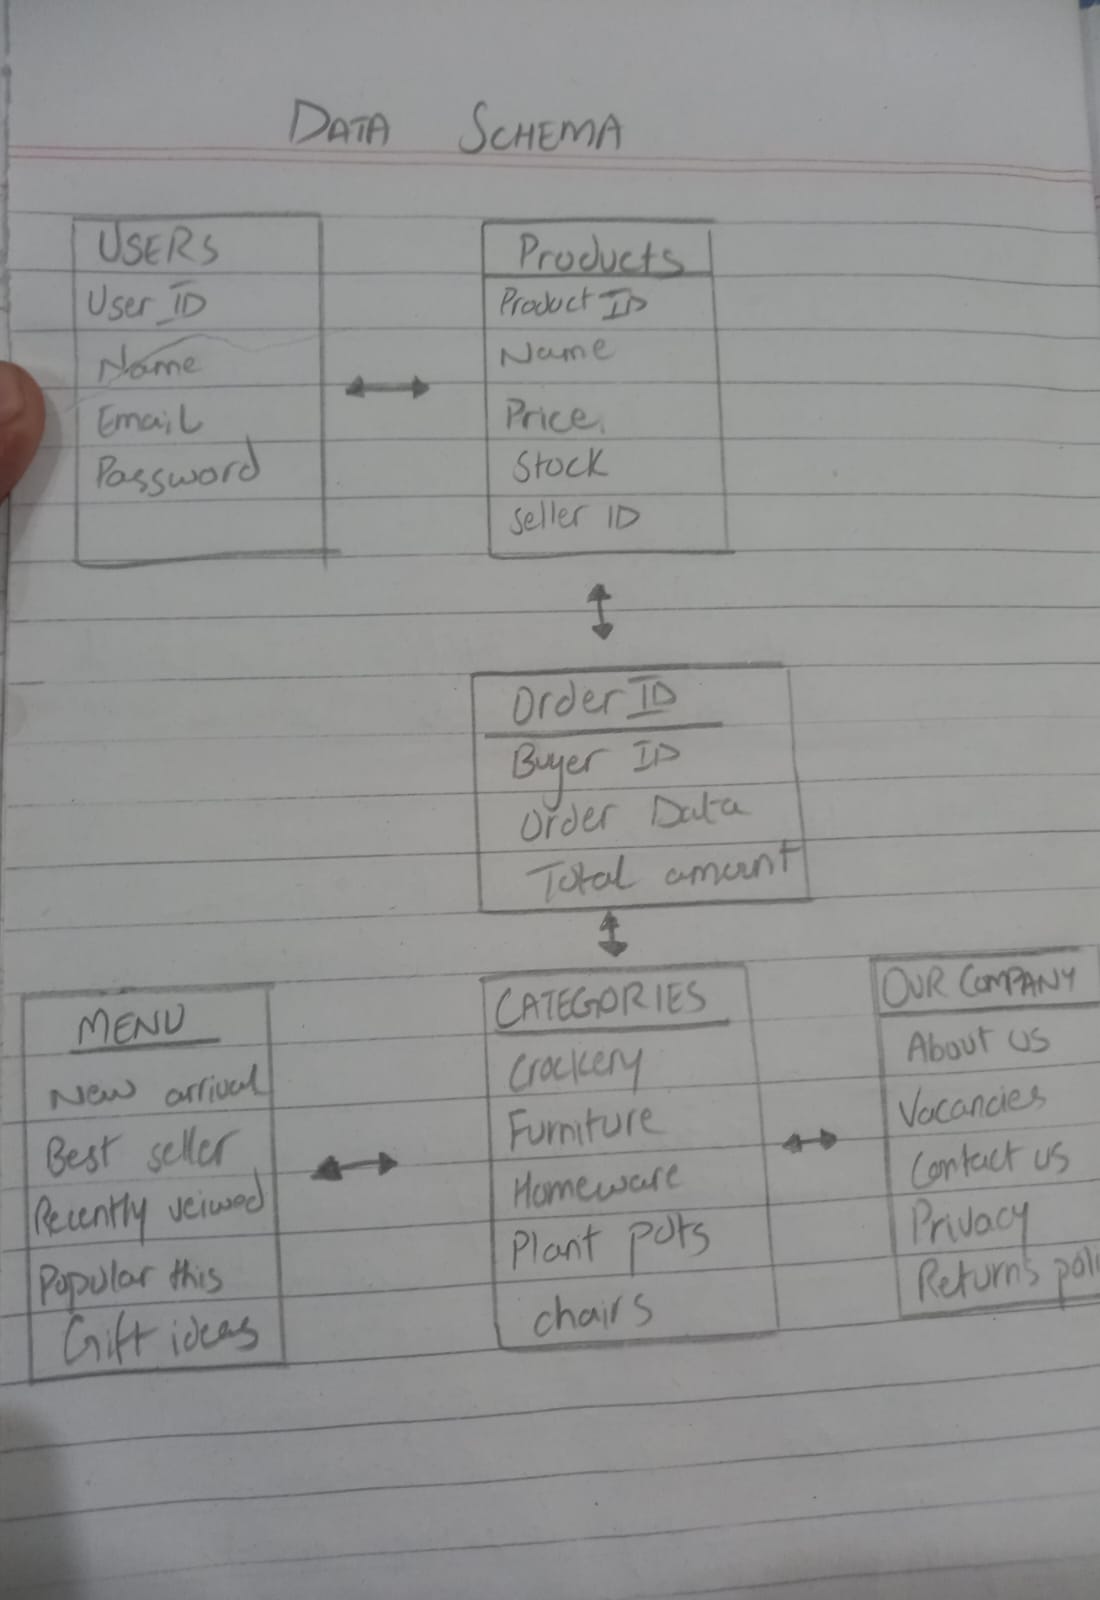 DATA SCHEMA
USERS
User ID
Name
Email
Password
Products
Product ID
Name
Price.
Stock
Seller ID
Order ID
Buyer ID
Order Data
Total amount
MENU
New arrival
Best seller
Recently veiwed
Popular this
Gift ideas
CATEGORIES
Crockery
Furniture
Homeware
Plant pots
chairs
OUR COMPANY
About us
Vacancies
Contact us
Privacy
Returns